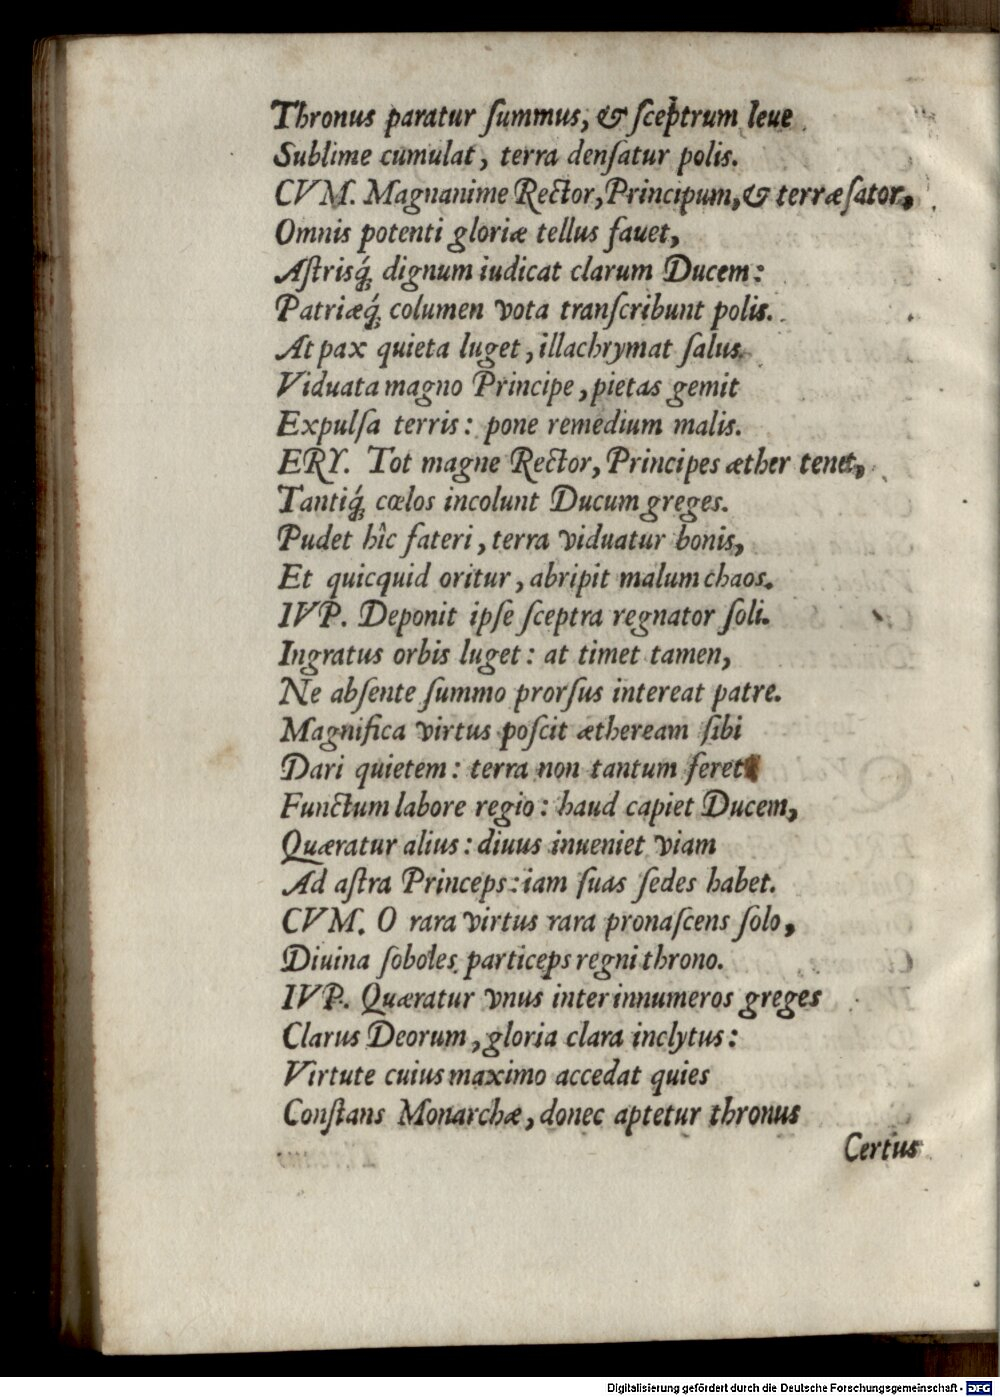 Thronus paratur ſummus, & ſceptrum leue
Sublime cumulat, terra denſatur polis.
CVM. Magnanime Rector, Principum, & terræ ſator,
Omnis potenti gloriæ tellus fauet,
Aſtrisq́; dignum iudicat clarum Ducem:
Patriæq́; columen vota tranſcribunt polis.
At pax quieta luget, illachrymat ſalus
Viduata magno Principe, pietas gemit
Expulſa terris: pone remedium malis.
ERY. Tot magne Rector, Principes æther tenet,
Tantiq́; cœlos incolunt Ducum greges.
Pudet hîc fateri, terra viduatur bonis,
Et quicquid oritur, abripit malum chaos.
IVP. Deponit ipſe ſceptra regnator ſoli.
Ingratus orbis luget: at timet tamen,
Ne abſente ſummo prorſus intereat patre.
Magnifica virtus poſcit ætheream ſibi
Dari quietem: terra non tantum feret
Functum labore regio: haud capiet Ducem,
Quæratur alius: diuus inueniet viam
Ad aſtra Princeps: iam ſuas ſedes habet.
CVM. O rara virtus rara pronaſcens ſolo,
Diuina ſoboles particeps regni throno.
IVP. Quæratur vnus inter innumeros greges
Clarus Deorum, gloria clara inclytus:
Virtute cuius maximo accedat quies
Conſtans Monarchæ, donec aptetur thronus
Certus
Digitalisierung gefördert durch die Deutsche Forschungsgemeinschaft - DFG